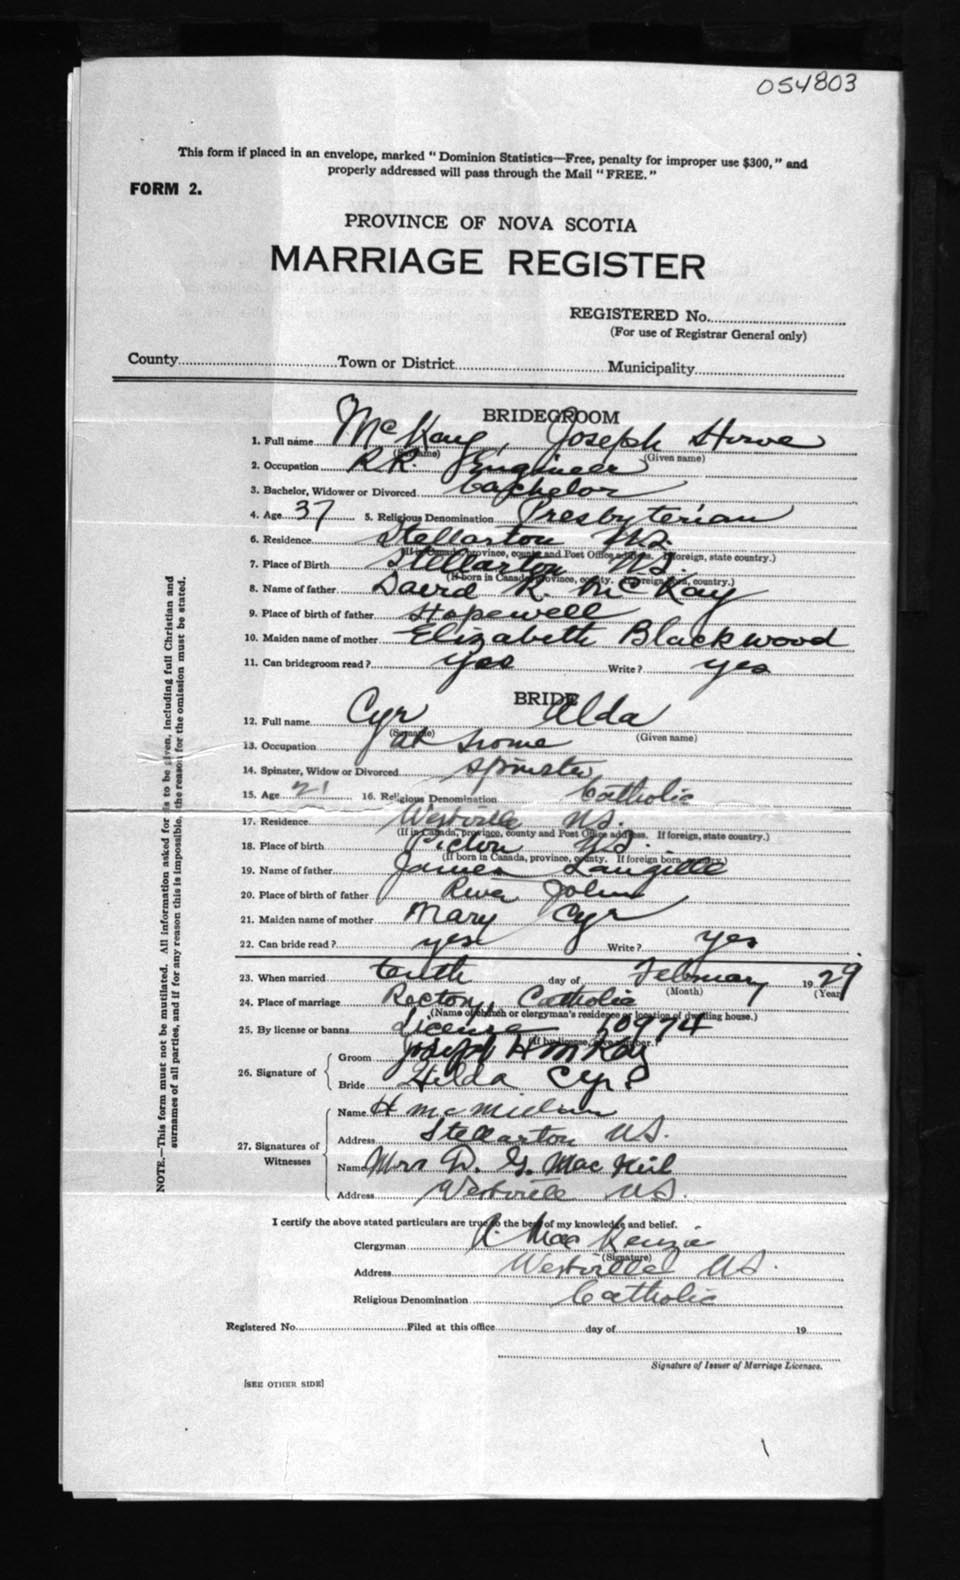 054803
This form if placed in an envelope, marked "Dominion Statistics—Free, penalty for improper use $300," and
properly addressed will pass through the Mail "FREE."
FORM 2.
PROVINCE OF NOVA SCOTIA
MARRIAGE REGISTER
REGISTERED No.
(For use of Registrar General only)
County Town or District Municipality
BRIDEGROOM
1. Full name McKay, Joseph Howe
(Surname) (Given name)
2. Occupation R.R. Engineer
3. Bachelor, Widower or Divorced Bachelor
4. Age 37 5. Religious Denomination Presbyterian
6. Residence Stellarton N.S.
(If in Canada, province, county and Post Office address. If foreign, state country.)
7. Place of Birth Stellarton N.S.
(If born in Canada, province, county. If foreign born, country.)
8. Name of father David R. McKay
9. Place of birth of father Hopewell
10. Maiden name of mother Elizabeth Blackwood
11. Can bridegroom read? yes Write? yes
BRIDE
12. Full name Cyr Alda
(Surname) (Given name)
13. Occupation at home
14. Spinster, Widow or Divorced Spinster
15. Age 21 16. Religious Denomination Catholic
17. Residence Westville N.S.
(If in Canada, province, county and Post Office address. If foreign, state country.)
18. Place of birth Pictou N.S.
(If born in Canada, province, county. If foreign born, country.)
19. Name of father James Langille
20. Place of birth of father River John
21. Maiden name of mother Mary Cyr
22. Can bride read? yes Write? yes
23. When married tenth day of February 1929
(Month) (Year)
24. Place of marriage Rectory, Catholic
(Name of church or clergyman's residence or location of dwelling house.)
25. By license or banns License 60974
(If by license, give number.)
26. Signature of Groom Joseph H McKay
Bride Hilda Cyr
27. Signatures of Witnesses Name H McMillan
Address Stellarton N.S.
Name Mrs D. G. MacNeil
Address Westville N.S.
I certify the above stated particulars are true to the best of my knowledge and belief.
Clergyman R. MacKenzie
(Signature)
Address Westville N.S.
Religious Denomination Catholic
Registered No. Filed at this office day of 19
Signature of Issuer of Marriage Licenses.
[SEE OTHER SIDE]
NOTE.—This form must not be mutilated. All information asked for is to be given, including full Christian and
surnames of all parties, and if for any reason this is impossible, the reason for the omission must be stated.